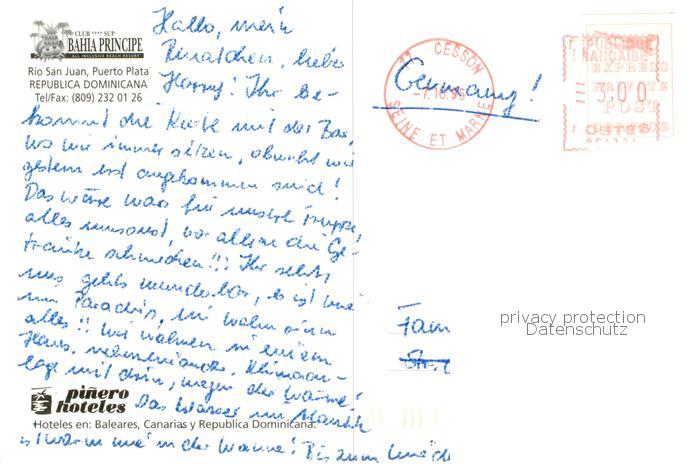 CLUB **** SUP
BAHIA PRINCIPE
ALL INCLUSIVE BEACH RESORT
Rio San Juan, Puerto Plata
REPUBLICA DOMINICANA
Tel/Fax: (809) 232 01 26
Hallo, mein
liebes
Harry! Ihr be-
kommt die Karte mit der Bar,
wo wir immer sitzen, obwohl wir
gestern erst angekommen sind!
Das wäre was für unsere Truppe!
alles umsonst, vor allem die Ge-
tränke schmecken!!! Ihr seht,
uns gehts wunderbar, es ist wie
im Paradies, im wahrsten
alles!! Wir wohnen in einem
Haus, nebeneinander, Klimaan-
lage mit drin, wegen der Wärme!
Das Wasser im Atlantik
ist warm wie in der Wanne! Bis zum
piñero
hoteles
Hoteles en: Baleares, Canarias y Republica Dominicana.
77 CESSON
SEINE ET MARNE
Germany!
REPUBLIQUE
FRANÇAISE
EXPRESS
PRIVATE
POST
Fam
privacy protection
Datenschutz